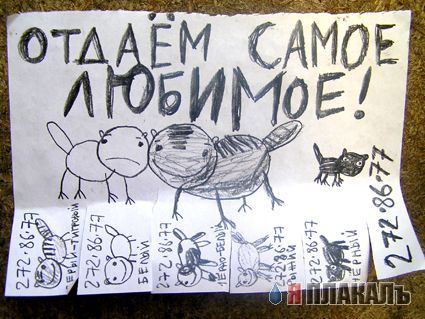 ОТДАЁМ САМОЕ
ЛЮБИМОЕ!
272-86-77
СЕРЫЙ-ТИГРОВЫЙ
272-86-77
БЕЛЫЙ
272-86-77
ЧЁРНО-БЕЛЫЙ
272-86-77
РЫЖИЙ
272-86-77
ЧЁРНЫЙ
272-86-77
ЯПЛАКАЛЪ